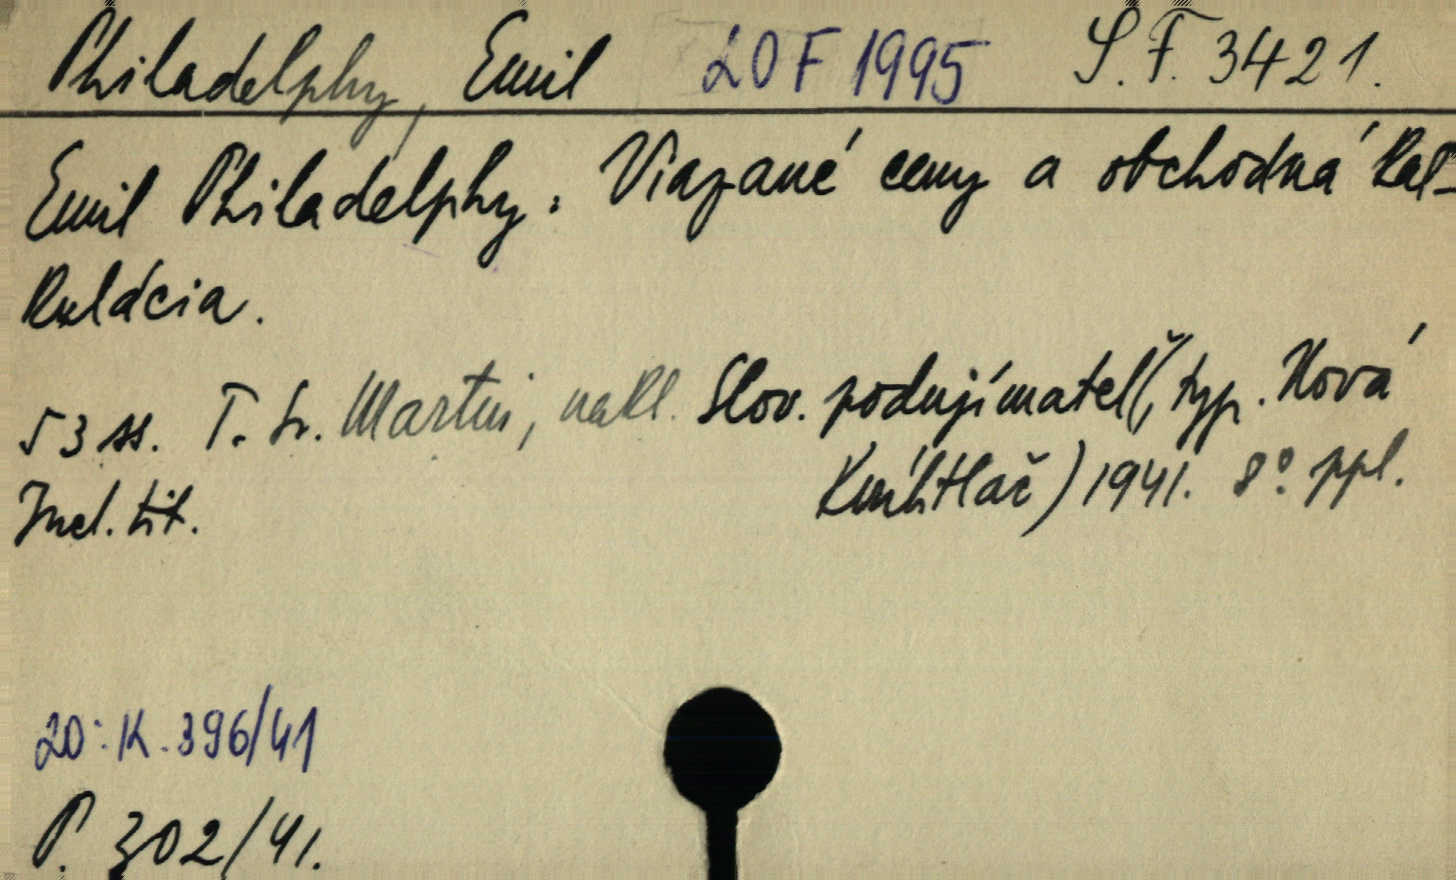 Philadelphy, Emil 20 F 1995 S.F. 3421.
Emil Philadelphy: Viazané ceny a obchodná kal-
kulácia.
53 ss. T. Sv. Martin, nakl. Slov. podnjímateľ (, typ. Nová
Kníhtlač) 1941. 8° ppl.
Incl. tit.
20: K. 396/41
P. 302/41.